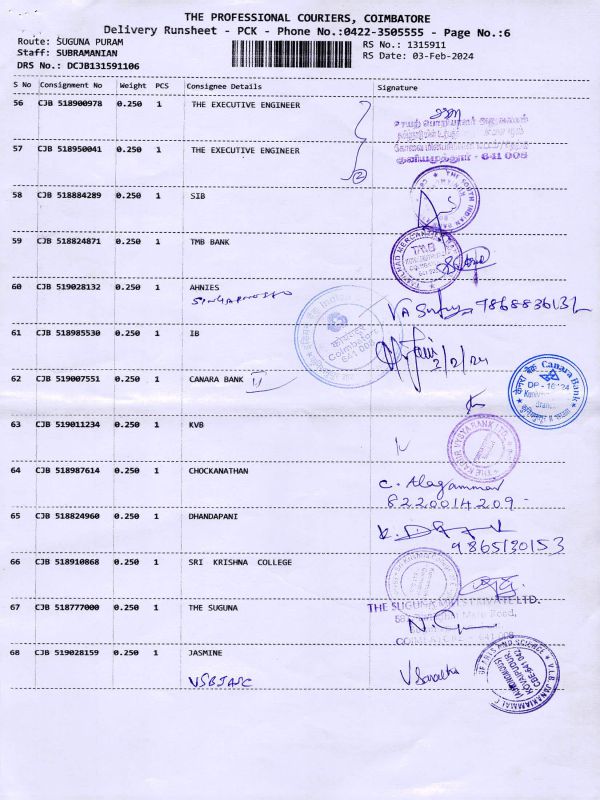 THE PROFESSIONAL COURIERS, COIMBATORE
Delivery Runsheet - PCK - Phone No.:0422-3505555 - Page No.:6
Route: SUGUNA PURAM RS No.: 1315911
Staff: SUBRAMANIAN RS Date: 03-Feb-2024
DRS No.: DCJB131591106
S No Consignment No Weight PCS Consignee Details Signature
56 CJB 518900978 0.250 1 THE EXECUTIVE ENGINEER
57 CJB 518950041 0.250 1 THE EXECUTIVE ENGINEER
2
குனியமுத்தூர் - 641 008
58 CJB 518884289 0.250 1 SIB
THE SOUTH INDIAN
59 CJB 518824871 0.250 1 TMB BANK
TMB
60 CJB 519028132 0.250 1 AHNIES
9868836132
61 CJB 518985530 0.250 1 IB
Coimbatore
641 008
2/2/24
62 CJB 519007551 0.250 1 CANARA BANK
Canara Bank
DP - 16124
63 CJB 519011234 0.250 1 KVB
THE KARUR VYSYA BANK LTD.
64 CJB 518987614 0.250 1 CHOCKANATHAN
C. Alagammai
8220014209
65 CJB 518824960 0.250 1 DHANDAPANI
9865130153
66 CJB 518910868 0.250 1 SRI KRISHNA COLLEGE
67 CJB 518777000 0.250 1 THE SUGUNA
THE SUGUNA MILLS PRIVATE LTD.
COIMBATORE - 641 008
68 CJB 519028159 0.250 1 JASMINE
V Saralha